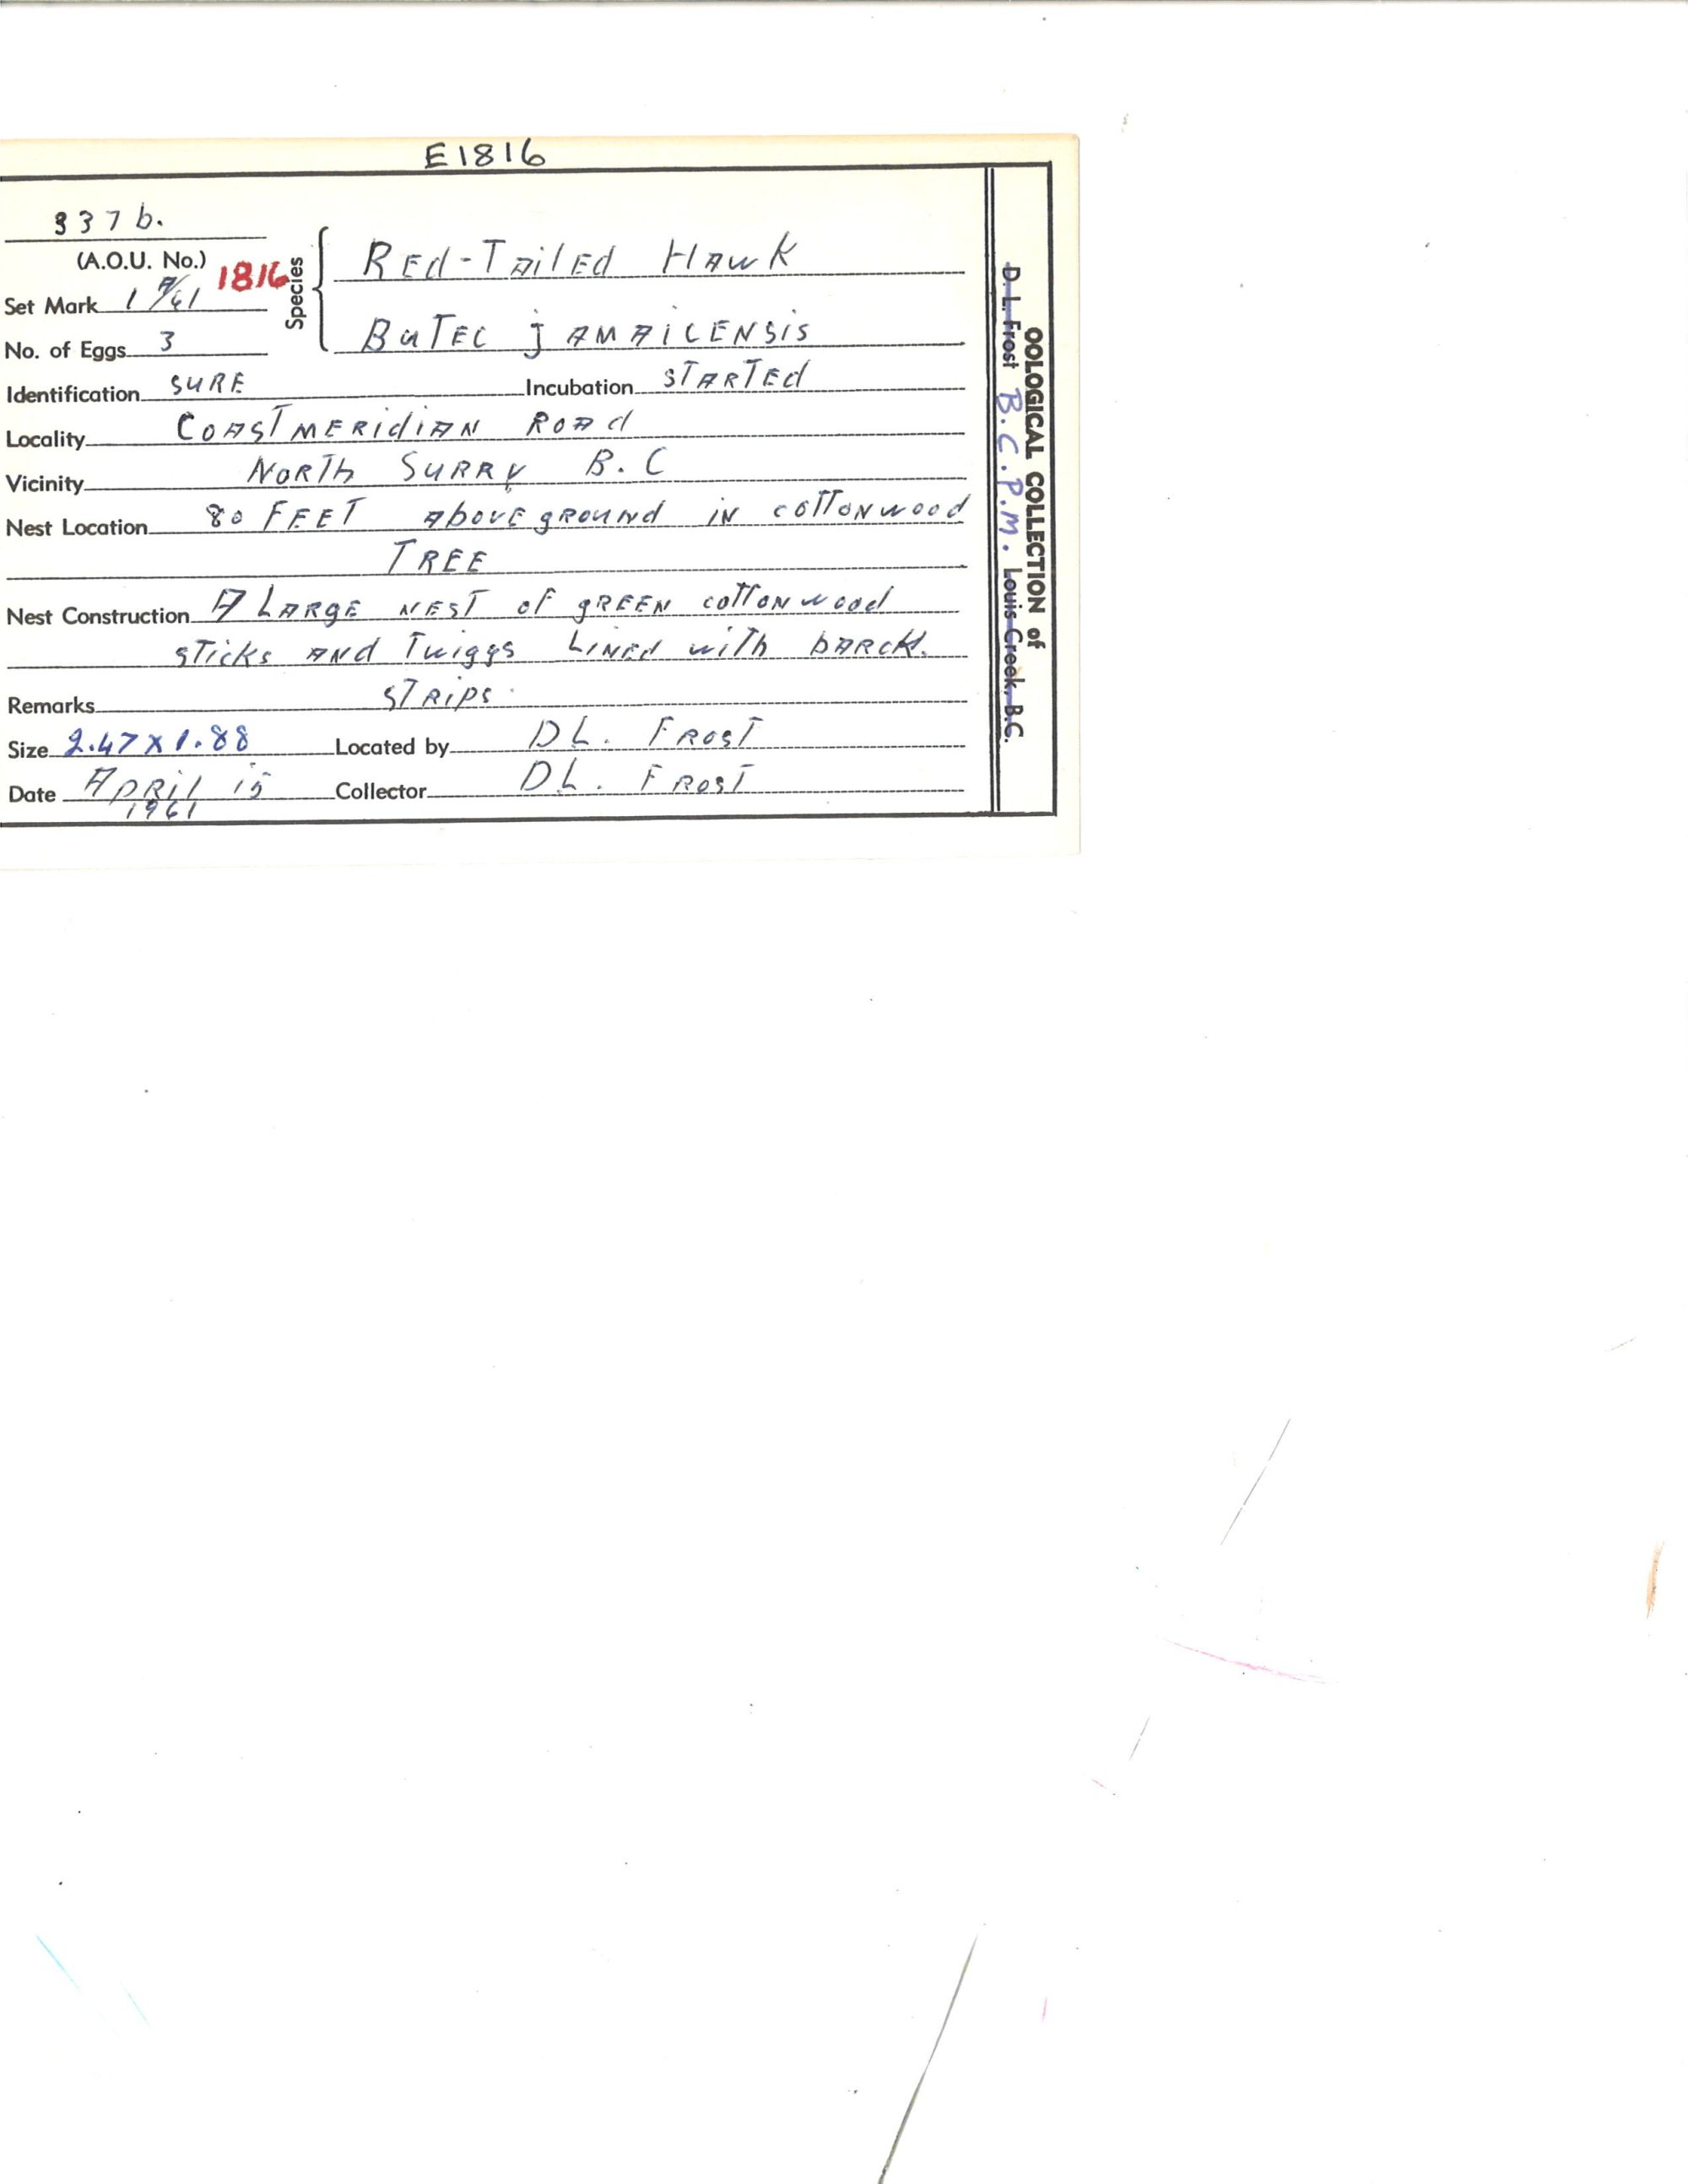 E1816
337b.
(A.O.U. No.)
1816
Set Mark 1 A/61
No. of Eggs 3
Species
Red-Tailed Hawk
Buteo jamaicensis
Identification SURE Incubation STARTEd
Locality COASTMERidiAN ROAd
Vicinity NORTh SURRY B.C
Nest Location 80 FEET AbovE gROUNd iN coTTONwood
TREE
Nest Construction A LARgE NEST oF gREEN coTTONwood
sTicks ANd Twiggs LiNEd wiTh bARCK.
Remarks STRipS.
Size 2.47 X 1.88 Located by DL. FROST
Date APRil 15 Collector DL. FROST
1961
OOLOGICAL COLLECTION of
D. L. Frost B.C.P.M. Louis Creek, B.C.